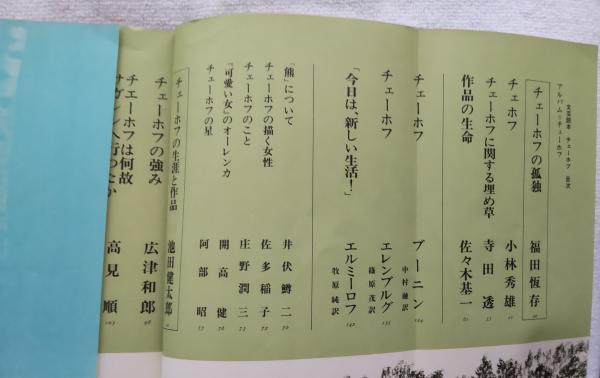 文芸読本 チェーホフ 目次
アルバム=チェーホフ
チェーホフの孤独 福田恆存
チェホフ 小林秀雄
チェーホフに関する埋め草 寺田透
作品の生命 佐々木基一
チェーホフ ブーニン
中村融訳 124
チェーホフ エレンブルグ
篠原茂訳
「今日は、新しい生活!」 エルミーロフ
牧原純訳 142
「熊」について 井伏鱒二 70
チェーホフの描く女性 佐多稲子
チェーホフのこと 庄野潤三
『可愛い女』のオーレンカ 開高健
チェーホフの星 阿部昭 77
チェーホフの生涯と作品 池田健太郎
チェーホフの強み 広津和郎
チェーホフは何故
サガレンへ行ったか 高見順